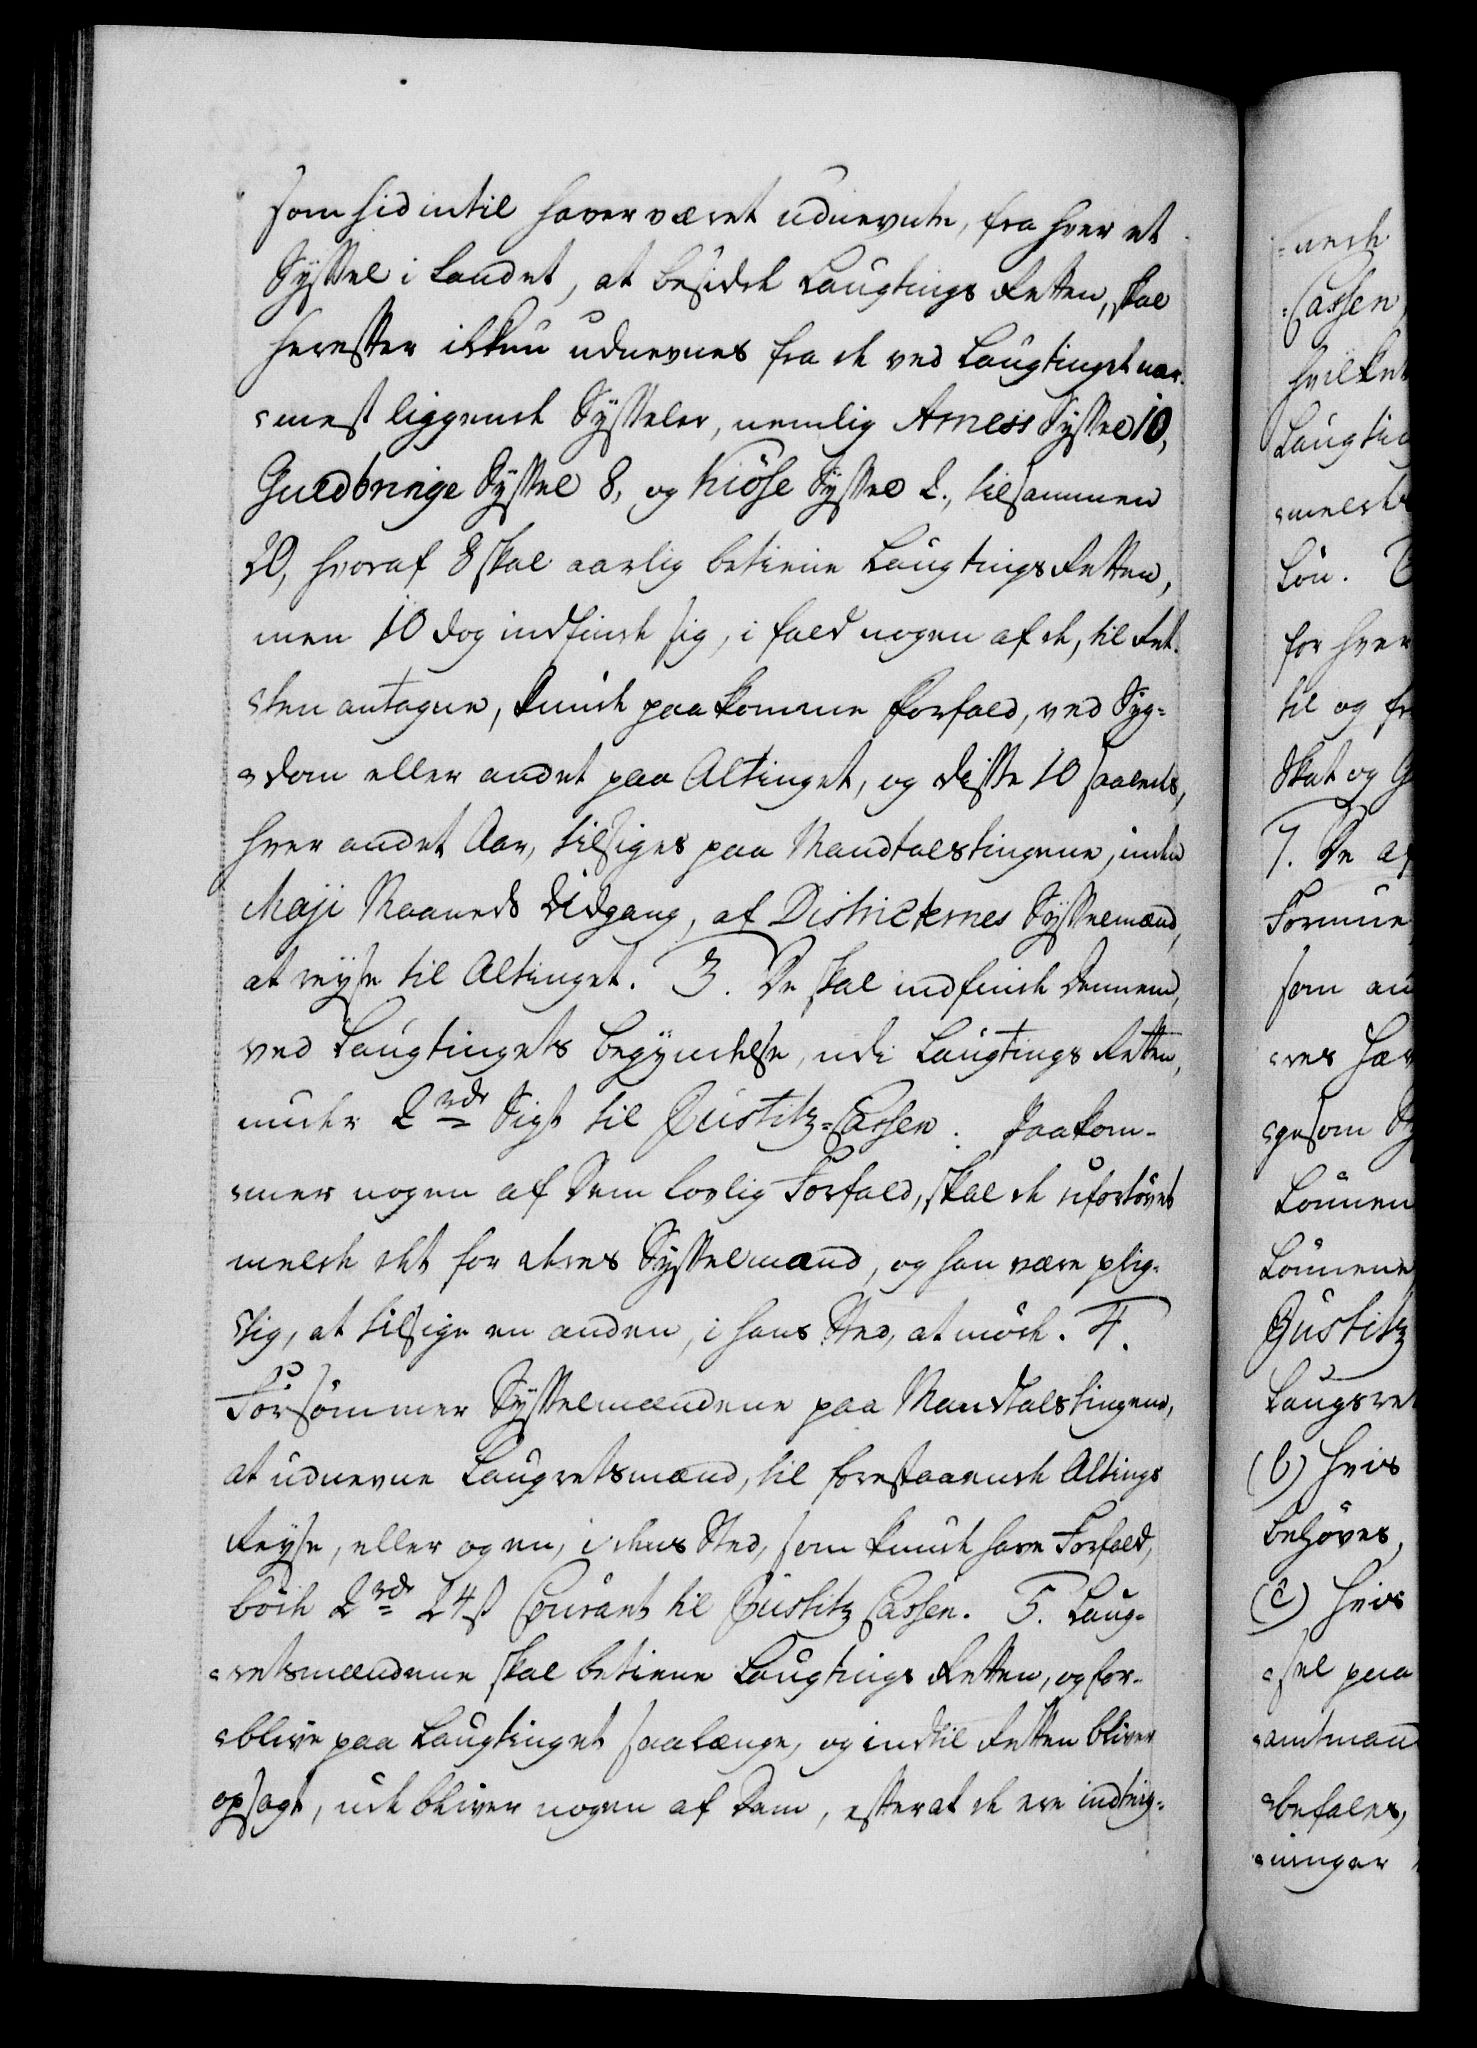 som hid intil haver været udnevnte, fra hver et
Syssel i Landet, at besidde Laugtings Retten, skal
herefter ikkun udnevnes fra de ved Laugtinget nær-
mest liggende Sysseler, nemlig Arness Syssel 10,
Guldbringe Syssel 8, og Kiöse Syssel 2, tilsammen
20, hvoraf 8 skal aarlig betiene Laugtings Retten,
men 10 dog indfinde sig, i fald nogen af de, til Ret-
ten antagne, kunde paakomme Forfald, ved Syg-
dom eller andet paa Altinget, og disse 10 saaledes,
hver andet Aar, tilsiges paa Mandtalstingene, inden
Maji Maaneds Udgang, af Districternes Sysselmænd,
at reyse til Altinget. 3. De skal indfinde dennem,
ved Laugtingets begyndelse, udi Laugtings Retten,
under 2 rdr Sigt til Justitz-Cassen. Paakom-
mer nogen af dem lovlig Forfald, skal de ufortövet
melde det for deres Sysselmand, og han være plig-
tig, at tilsige en anden, i hans Sted, at möde. 4.
Forsömmer Sysselmændene paa Mandtalstingene,
at udnevne Laugretsmænd, til forestaaende Altings
Reyse, eller og en, i dens Sted, som kunde have Forfald,
böde 2 rdr 24 ß Courant til Justitz Cassen. 5. Laug-
retsmændene skal betiene Laugtings Retten, og for-
blive paa Laugtinget saalænge, og indtil Retten bliver
opsagt, ude bliver nogen af dem, efter at de ere indteig-
nede
Cassen,
hvilket
Laugtin
melde
Lön.
for hver
til og fr
Skat og G
7. De a
Formue
som an
res Hær
gesom Sy
Lönnen
Lönnene
Justitz
Laugret
(b) Hvis
behöves,
(c) Hvis
sel paa
amtmand
befales,
ninger